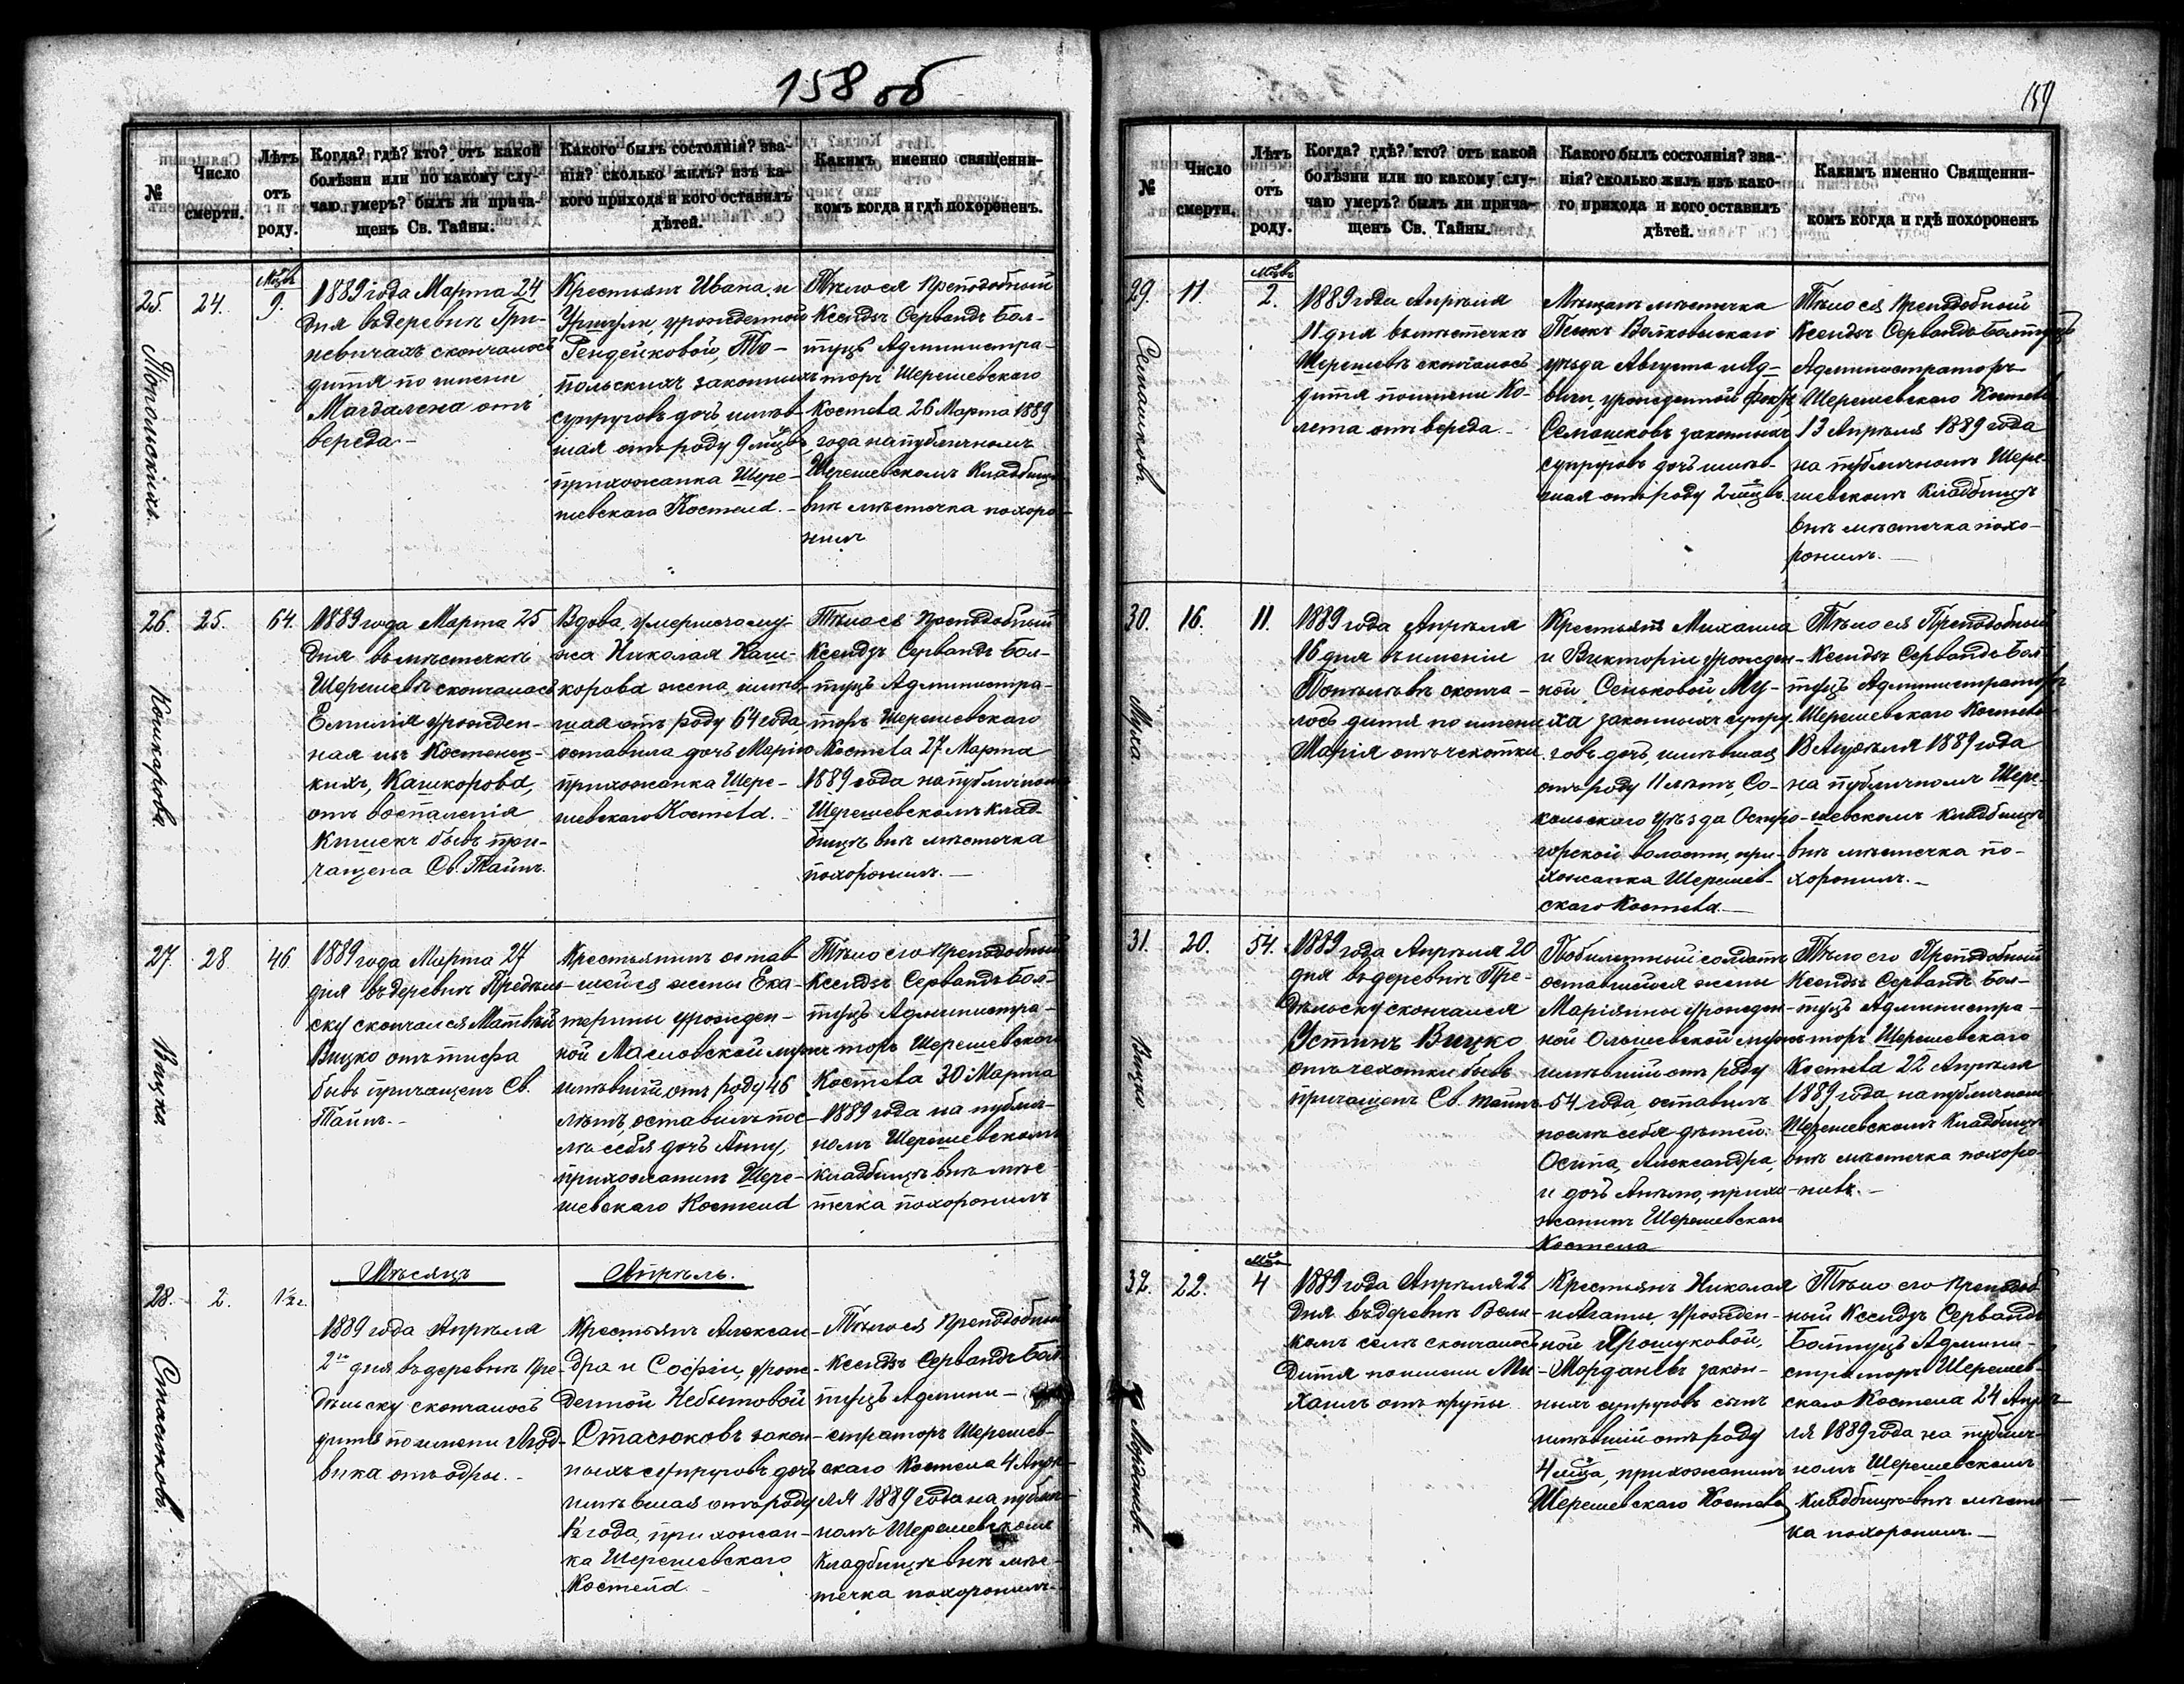 158 об
№
Число
смерти.
Лѣтъ
отъ
роду.
Когда? гдѣ? кто? отъ какой
болѣзни или по какому слу-
чаю умеръ? былъ ли прича-
щенъ Св. Тайны.
Какого былъ состоянія? зва-
нія? сколько жилъ? изъ ка-
кого прихода и кого оставилъ
дѣтей.
Какимъ именно священни-
комъ когда и гдѣ похороненъ.
25.
Топольскихъ.
24.
9.
1889 года Марта 24
дня въ деревнѣ Гри-
невичахъ скончалось
дитя по имени
Магдалена отъ
вереда.-
Крестьянъ Ивана и
Уршули, урожденной
Гендейковой, То-
польскихъ законныхъ
супруговъ дочь, имѣв-
шая отъ роду 9 мцвъ
прихожанка Шере-
шевскаго Костела.-
Тѣло ея Преподобный
Ксендзъ Сервандъ Бол-
туцъ Администра-
торъ Шерешевскаго
Костела 26 Марта 1889
года на публичномъ
Шерешевскомъ Кладбищѣ
внѣ мѣстечка похоро-
нилъ
26.
Кошкарова
25.
64.
1889 года Марта 25
дня въ мѣстечкѣ
Шерешевѣ скончалась
Емилія урожден-
ная изъ
кихъ, Кашкорова,
отъ воспаленія
кишекъ бывъ при-
чащена Св. Тайнъ.
Вдова умершаго му-
жа Николая Каш-
корова жена, имѣв-
шая отъ роду 64 года,
оставила дочь Марію
прихожанка Шере-
шевскаго Костела.-
Тѣло ея Преподобный
Ксендзъ Сервандъ Бол-
туцъ Администра-
торъ Шерешевскаго
Костела 27 Марта
1889 года на публичномъ
Шерешевскомъ Клад-
бищѣ внѣ мѣстечка
похоронилъ.-
27.
Вицко.
28
46
1889 года Марта 27
дня въ деревнѣ Предѣль-
ску скончался Матвѣй
Вицко отъ тифа
бывъ причащенъ Св.
Тайнъ.-
Крестьянинъ остав-
шейся жены Ека-
терины урожден-
ной Масловской мужъ
имѣвшій отъ роду 46
лѣтъ, оставилъ пос-
лѣ себя дочь Анну,
прихожанинъ Шере-
шевскаго Костела
Тѣло его Преподобный
Ксендзъ Сервандъ Бол-
туцъ Администра-
торъ Шерешевскаго
Костела 30 Марта
1889 года на публич-
номъ Шерешевскомъ
кладбищѣ внѣ мѣс-
течка похоронилъ
Мѣсяцъ Апрѣль.
28.
Стасюковъ.
2.
1½ г.
1889 года Апрѣля
2го дня въ деревнѣ Пре-
дѣльску скончалось
дитя по имени Люд-
вика отъ одры.-
Крестьянъ Алексан-
дра и Софіи, урож-
денной Небытовой
Стасюковъ закон-
ныхъ супруговъ дочь
имѣвшая отъ роду
1½ года, прихожан-
ка Шерешевскаго
Костела.-
Тѣло ея Преподобный
Ксендзъ Сервандъ Бол-
туцъ Админи-
страторъ Шерешев-
скаго Костела 4 Апрѣ-
ля 1889 года на публич-
номъ Шерешевскомъ
Кладбищѣ внѣ мѣс-
течка похоронилъ.-
159
№
Число
смерти.
Лѣтъ
отъ
роду.
Когда? гдѣ? кто? отъ какой
болѣзни или по какому слу-
чаю умеръ? былъ ли прича-
щенъ Св. Тайны.
Какого былъ состоянія? зва-
нія? сколько жилъ изъ како-
го прихода и кого оставилъ
дѣтей.
Какимъ именно Священни-
комъ когда и гдѣ похороненъ
29.
Семашковъ.
11
2.
1889 года Апрѣля
11 дня въ мѣстечкѣ
Шерешевѣ скончалось
дитя по имени Ко-
лета отъ вереда.-
Мѣщанъ мѣстечка
Песокъ Волковыскаго
уѣзда Августа и Яд-
виги, урожденной
Семашковъ законныхъ
супруговъ дочь имѣв-
шая отъ роду 2 мцвъ.
Тѣло ея Преподобный
Ксендзъ Сервандъ Болтуцъ
Администраторъ
Шерешевскаго Костела
13 Апрѣля 1889 года
на публичномъ Шере-
шевскомъ Кладбищѣ
внѣ мѣстечка похо-
ронилъ.-
30.
Муха
16.
11.
1889 года Апрѣля
16 дня въ имѣніи
сконча-
лось дитя по имени
Марія отъ чехотки
Крестьянъ Михаила
и Викторіи урожден-
ной Сеньковой Му-
ха законныхъ супру-
говъ дочь, имѣвшая
отъ роду 11 лѣтъ, Со-
кольского уѣзда Остро-
горской волости, при-
хожанка Шерешев-
скаго Костела.-
Тѣло ея Преподобный
Ксендзъ Сервандъ Бол-
туцъ Администраторъ
Шерешевскаго Костела
18 Апрѣля 1889 года
на публичномъ Шере-
шевскомъ кладбищѣ
внѣ мѣстечка по-
хоронилъ.-
31.
Вицко
20.
54.
1889 года Апрѣля 20
дня въ деревнѣ Пре-
дѣльску скончался
Устинъ Вицко
отъ чехотки бывъ
причащенъ Св. тайнъ
Побилетный солдатъ
оставшейся жены
Маріянны урожден-
ной Ольшевской мужъ
имѣвшій отъ роду
54 года, оставилъ
послѣ себя дѣтей:
Осипа, Александра,
и дочь Анелю, прихо-
жанинъ Шерешевскаго
Костела
Тѣло его Преподобный
Ксендзъ Сервандъ Бол-
туцъ Администра-
торъ Шерешевскаго
Костела 22 Апрѣля
1889 года на публичномъ
Шерешевскомъ Кладбищѣ
внѣ мѣстечка похоро-
нивъ.-
32.
Морданевъ.
22.
4
1889 года Апрѣля 22
дня въ деревнѣ Вели-
комъ селѣ скончалось
дитя по имени Ми-
хаилъ отъ крупы
Крестьянъ Николая
и Агаты, урожден-
ной Ярошуковой,
Морданевъ закон-
ныхъ супруговъ сынъ
имѣвшій отъ роду
4 мца, прихожанинъ
Шерешевскаго Костела
Тѣло его Преподоб-
ный Ксендзъ Сервандъ
Болтуцъ Админи-
страторъ Шерешев-
скаго Костела 24 Апрѣ-
ля 1889 года на публич-
номъ Шерешевскомъ
Кладбищѣ внѣ мѣстеч-
ка похоронилъ.-